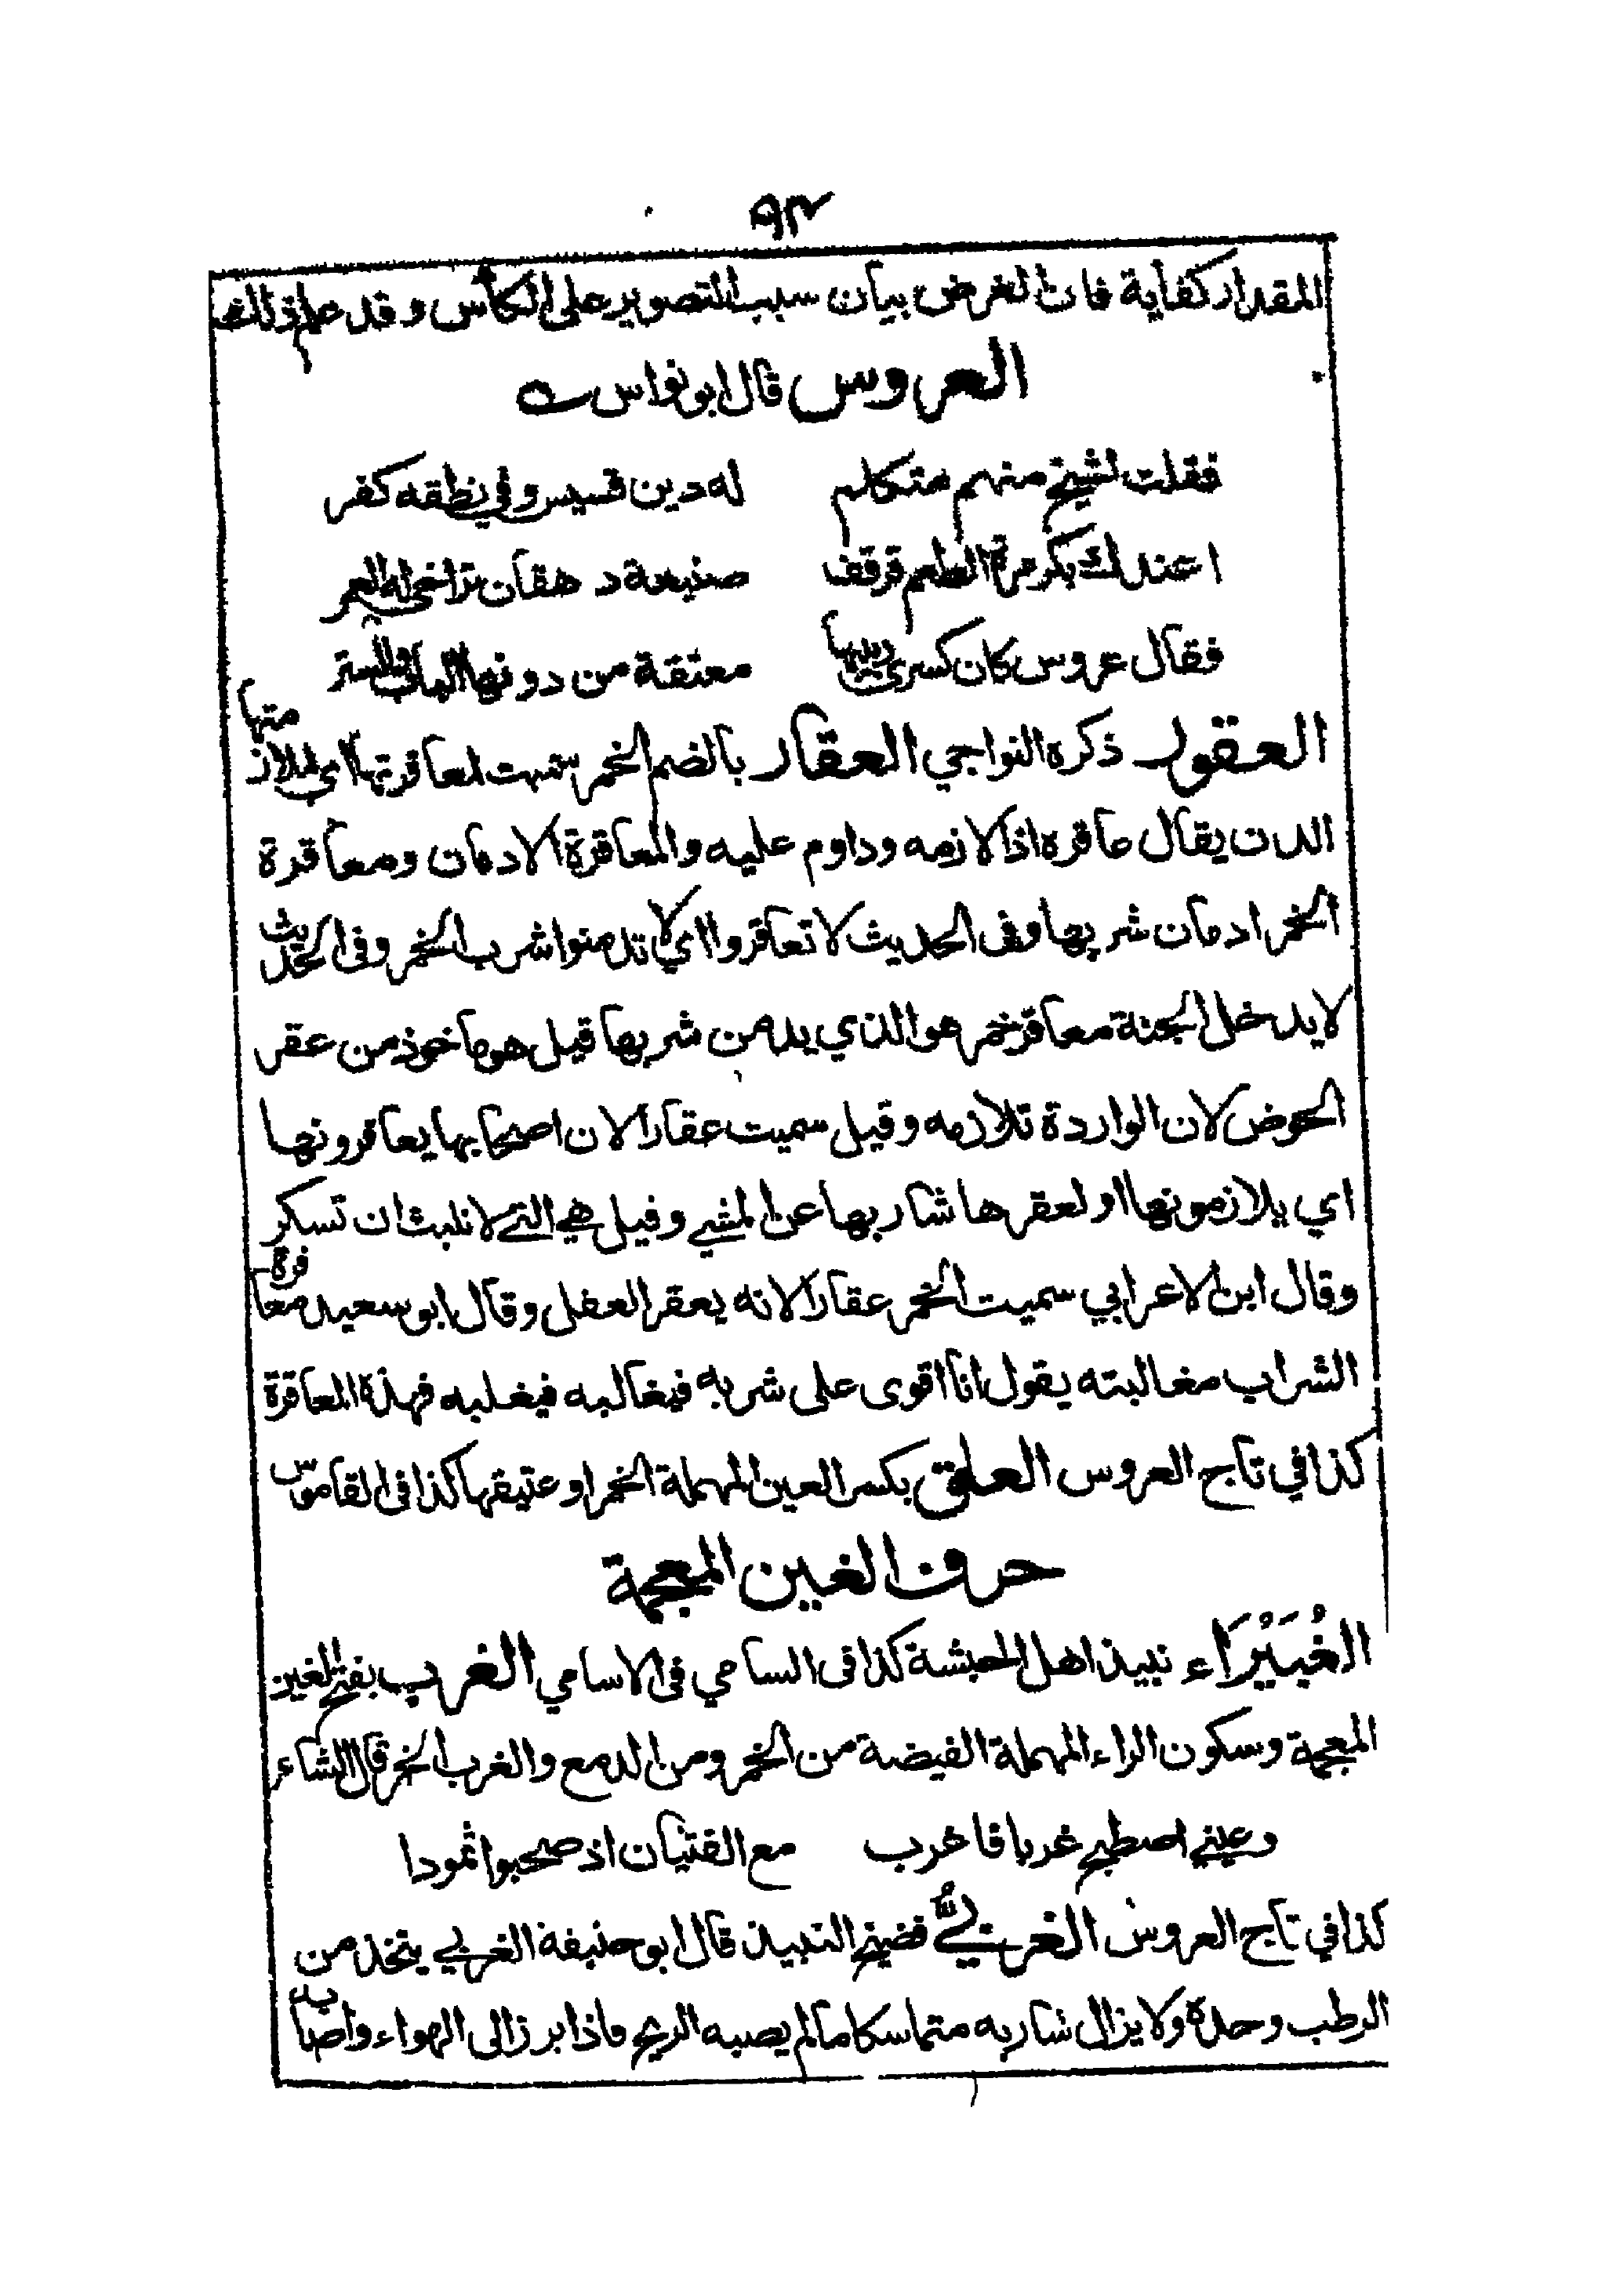 ٩٣
المقدار كفاية فان الغرض بيان سبب التصوير على الكأس وقد علم
العروس قال ابو نواس
فقلت لشيخ منهم متكلم له دين قسيس وفي نطقه كفر
اعندك بكر مرة الطعم قرقف صنيعة دهقان تراخى له العمر
فقال عروس كان كسرى ربيبها معتقة من دونها الباب والستر
العقور ذكره النواجي العقار بالضم الخمر سميت لمعاقرتها اي لملازمتها
الدن يقال عاقره اذا لازمه وداوم عليه والمعاقرة الادمان ومعاقرة
الخمر ادمان شربها وفى الحديث لا تعاقروا اي لا تدمنوا شرب الخمر وفى الحديث
لا يدخل الجنة معاقر خمر هو الذي يدمن شربها قيل هو ماخوذ من عقر
الحوض لان الواردة تلازمه وقيل سميت عقارا لان اصحابها يعاقرونها
اي يلازمونها او لعقرها شاربها عن المشي وقيل هي التي لا تلبث ان تسكر
وقال ابن الاعرابي سميت الخمر عقارا لانه يعقر العقل وقال ابو سعيد معاقرة
الشراب مغالبته يقول انا اقوى على شربه فيغالبه فيغلبه فهذه المعاقرة
كذا في تاج العروس العلق بكسر العين المهملة الخمر او عتيقها كذا فى القاموس
حرف الغين المعجمة
الغُبَيْرَاء نبيذ اهل الحبشة كذا فى السامي فى الاسامي الغرب بفتح الغين
المعجمة وسكون الراء المهملة الفيضة من الخمر ومن الدمع والغرب الخمر قال الشاعر
دعيني اصطبح غربا فاغرب مع الفتيان اذ صحبوا ثمودا
كذا في تاج العروس الغربيُّ فضيخ النبيذ قال ابو حنيفة الغربي يتخذ من
الرطب وحده ولا يزال شاربه متماسكا ما لم يصبه الريح فاذا برز الى الهواء واصابه